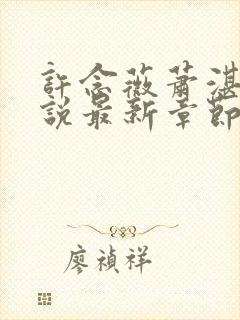 許念薇蕭湛
說最新章節
廖禎祥